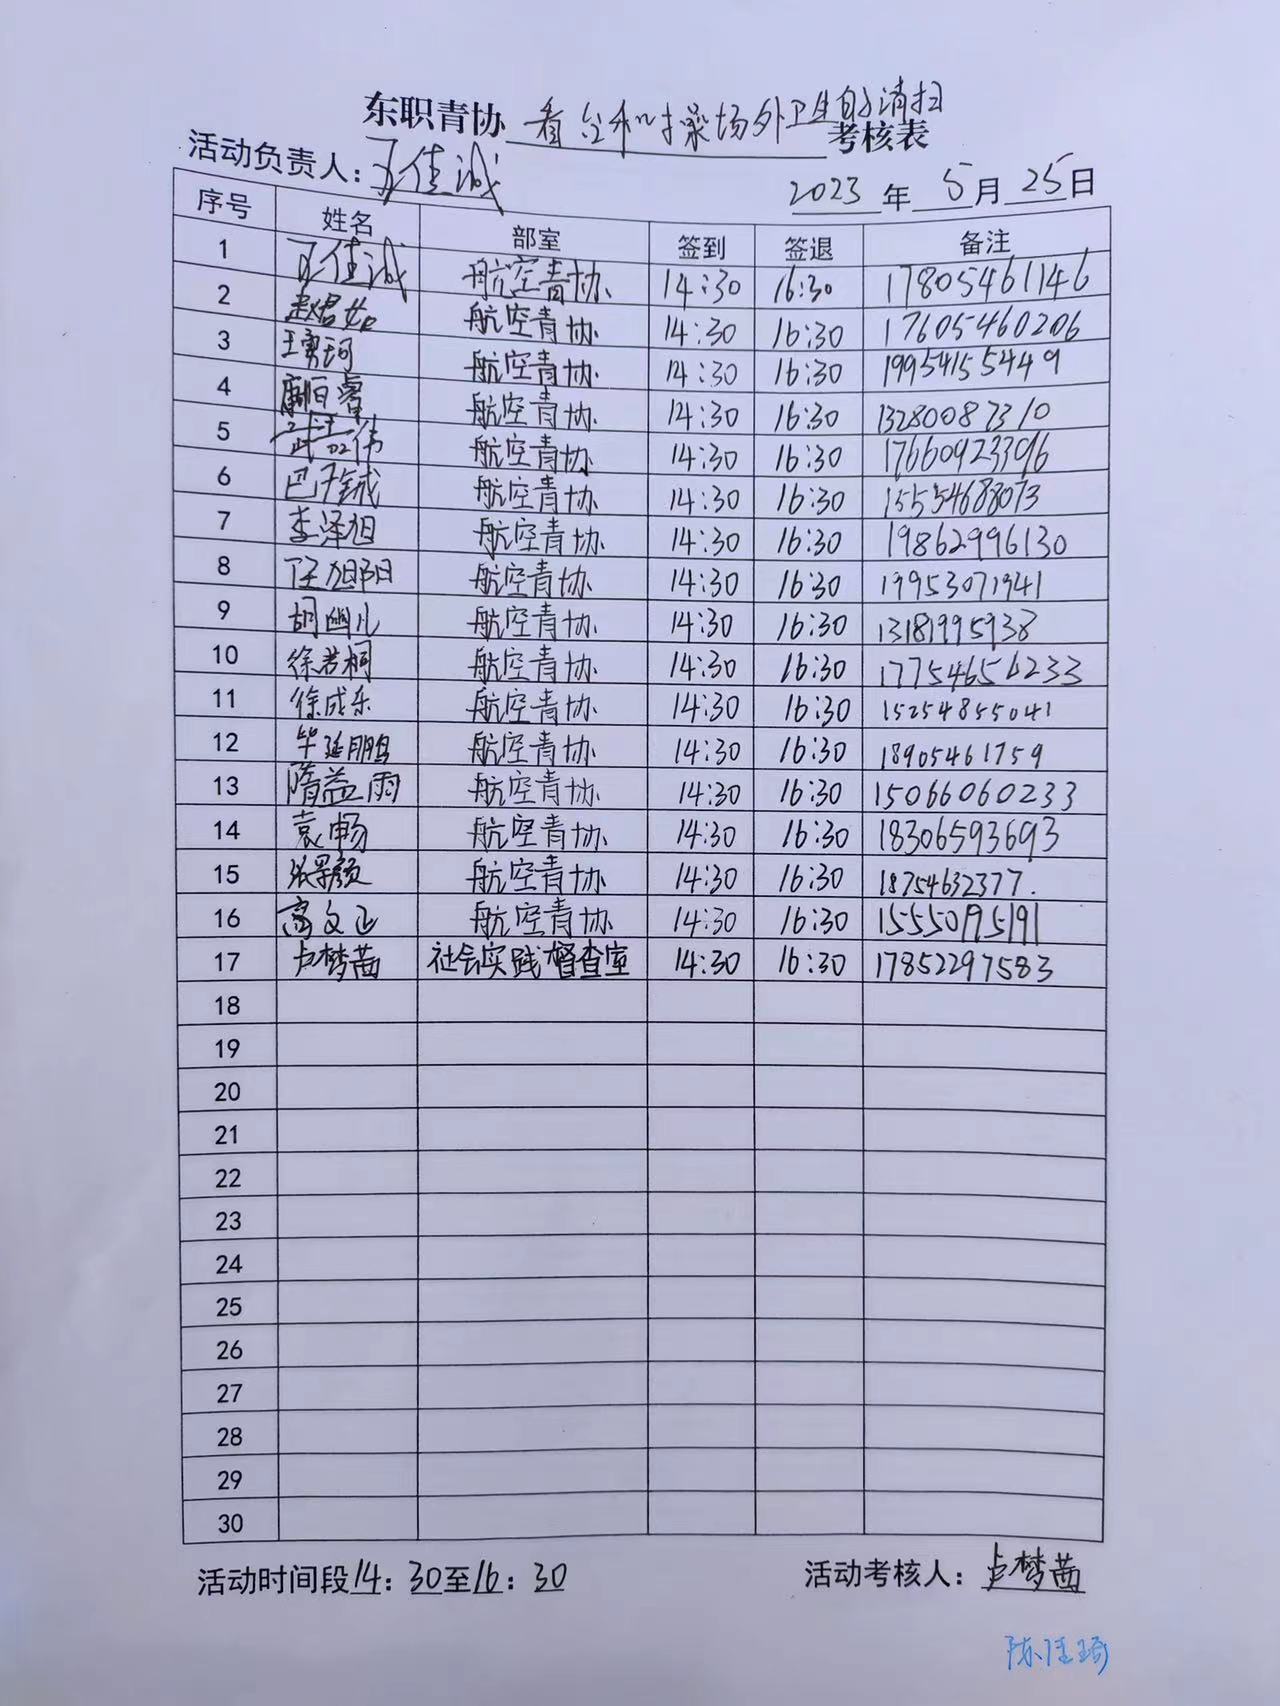 东职青协 看台和操场外卫生的清扫 考核表
活动负责人：王佳诚
2023 年 5 月 25 日
序号 姓名 部室 签到 签退 备注
1 王佳诚 航空青协 14:30 16:30 17805461146
2 航空青协 14:30 16:30 17605460206
3 航空青协 14:30 16:30 19954155449
4 航空青协 14:30 16:30 13280087310
5 航空青协 14:30 16:30 17660923396
6 航空青协 14:30 16:30 15554688073
7 李泽旭 航空青协 14:30 16:30 19862996130
8 任旭阳 航空青协 14:30 16:30 19953071941
9 胡幽儿 航空青协 14:30 16:30 13181995938
10 徐若桐 航空青协 14:30 16:30 17754656233
11 徐成乐 航空青协 14:30 16:30 15254855041
12 毕延鹏 航空青协 14:30 16:30 18905461759
13 隋益雨 航空青协 14:30 16:30 15066060233
14 袁畅 航空青协 14:30 16:30 18306593693
15 航空青协 14:30 16:30 18754632377.
16 高文正 航空青协 14:30 16:30 15550195191
17 卢梦茜 社会实践督查室 14:30 16:30 17852297583
18
19
20
21
22
23
24
25
26
27
28
29
30
活动时间段14：30至16：30 活动考核人：卢梦茜
陈佳琦